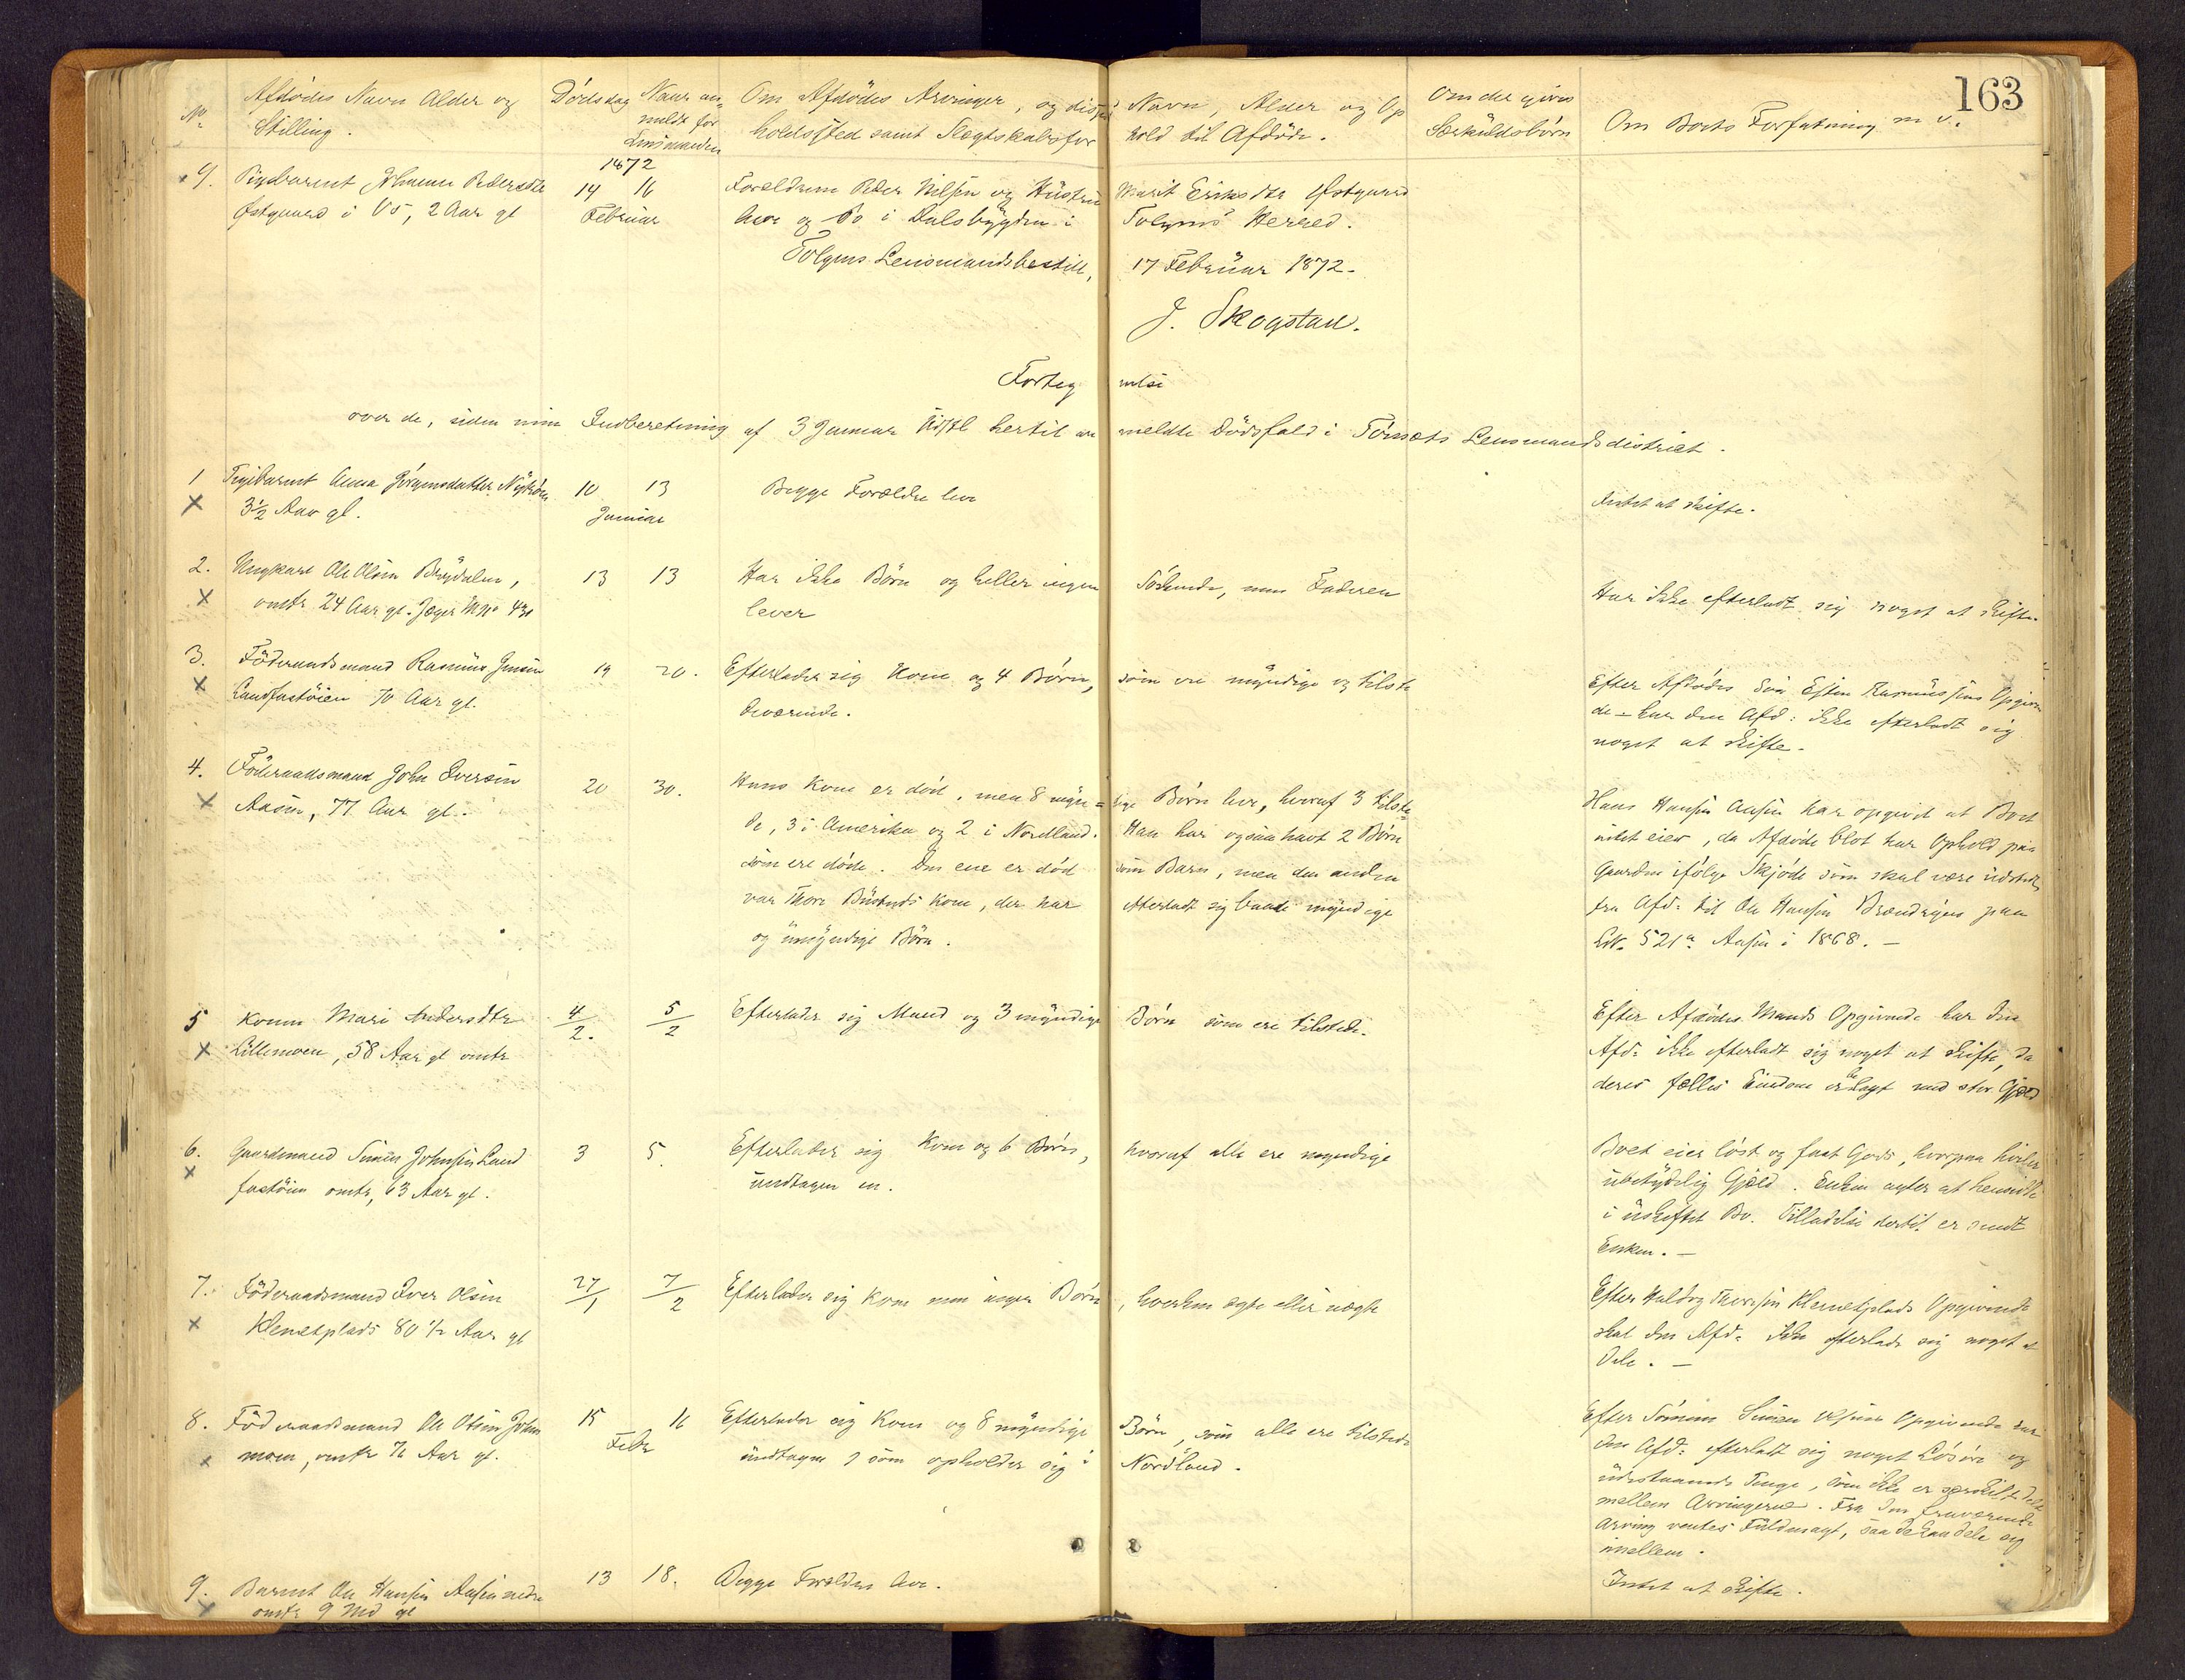 163
No Afdødes Navn Alder og Dødsdag Naar an- Om Afdødes Arvinger, og disses Navn, Alder og Op Om der gives Om Boets Forfatning m v.
Stilling. meldt for holdssted samt Slegtskabsfor hold til Afdøde. Særkuldsbørn
Lensmanden
1872
9. Pigebarnet Johanne Pedersdtr 14 16 Forældrene Peder Nilsen og Hustru Marit Eriksdtr Østgaard
Østgaard i Os, 2 Aar gl Februar leve og Bo i Dalsbygden i Tolgens Herred.
Tolgens Lensmandsbestill, 17 Februar 1872.
J. Skogstad.
Forteg nelse
over de, siden min Indberetning af 3 Januar hertil an meldte Dødsfald i Tønsets Lensmandsdistrict.
1 Pigebarnet Anna Jörgensdatter 10 13 Begge Forældre leve Intet at skifte.
3½ Aar gl. Januar
2. Ungkarl Ole Olsen Brydalen, 13 13 Har ikke Börn og heller ingen Söskende, men Faderen Har ikke efterladt sig noget at skifte.
omtr 24 Aar gl. Jæger No 430 lever
3. Föderaadsmand Rasmus Jensen 19 20. Efterlader sig Kone og 4 Börn, som ere myndige og tilste Efter Afdødes Sön Esten Rasmussens Opgiven
Landfastöien 70 Aar gl. deværende. de - har den Afd: ikke efterladt sig
noget at skifte.
4. Föderaadsmand John Iversen 20 30. Hans Kone er död, men 8 myn= dige Börn lever, hvoraf 3 tilste= Hans Hansen Aasen har opgivet at Boet
Aasen, 77 Aar gl. de, 3 i Amerika og 2 i Nordland. Han har ogsaa havt 2 Börn intet eier, da Afdöde blot har Ophold paa
som ere döde. Den ene er död som Barn, men den anden Gaarden ifölge Skjöde som skal være udstedt
var Thore Kone, der har efterladt sig baade myndige fra Afd: til Ole Hansen paa
og umyndige Börn. LN. 521a Aasen i 1868. -
5 Konen Mari Andersdtr 4/2. 5/2 Efterlader sig Mand og 3 myndige Börn som ere tilstede. Efter Afdödes Mands Opgivende har den
Lillemoen, 58 Aar gl omtr Afd: ikke efterladt sig noget at skifte, da
deres fælles Eiendom er belagt med stor Gjæld
6. Gaardmand Simen Johnsen Land 3 5. Efterlader sig Kone og 6 Börn, hvoraf alle ere myndige Boet eier löst og fast Gods, hvorpaa hviler
fastöien omtr, 63 Aar gl. undtagen en. ubetydelig Gjæld. Enken agter at hensidde
i uskiftet Bo. Tilladelse dertil er sendt
Enken. -
7. Föderaadsmand Iver Olsen 27/1 7/2 Efterlader sig Kone men ingen Börn, hverken ægte eller uægte Efter Haldog Thoresen Klemetplads Opgivende
Klemetplads 80½ Aar gl skal den Afd: ikke efterlade sig noget at
dele. -
8. Föderaadsmand Ole Olsen John 15 16 Efterlader sig Kone og 8 myndige Börn, som alle ere tilstede Efter Sönnen Simen Olsens Opgivende har
moen, omtr 76 Aar gl. Febr undtagen 1 som opholder sig i Nordland. den Afd: efterladt sig noget Lösöre og
udestaaende Penge, som ikke er særskilt delt
mellem Arvingerne. Fra den fraværende
Arving ventes Fuldmagt, saa de kan dele sig
imellem.
9. Barnet Ole Hansen Aasen nedre 13 18. Begge Forældre leve. Intet at skifte.
omtr 9 Md gl